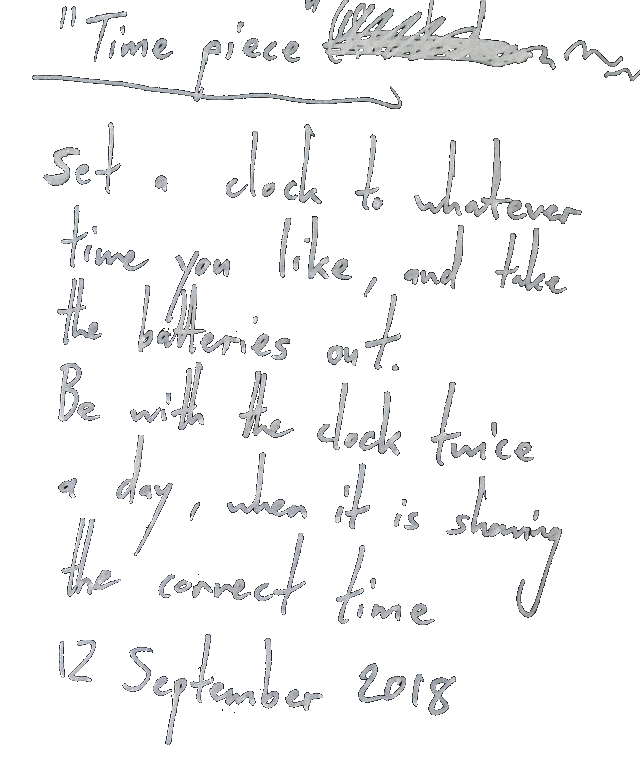 "Time piece"
Set a clock to whatever
time you like, and take
the batteries out.
Be with the clock twice
a day, when it is showing
the correct time
12 September 2018